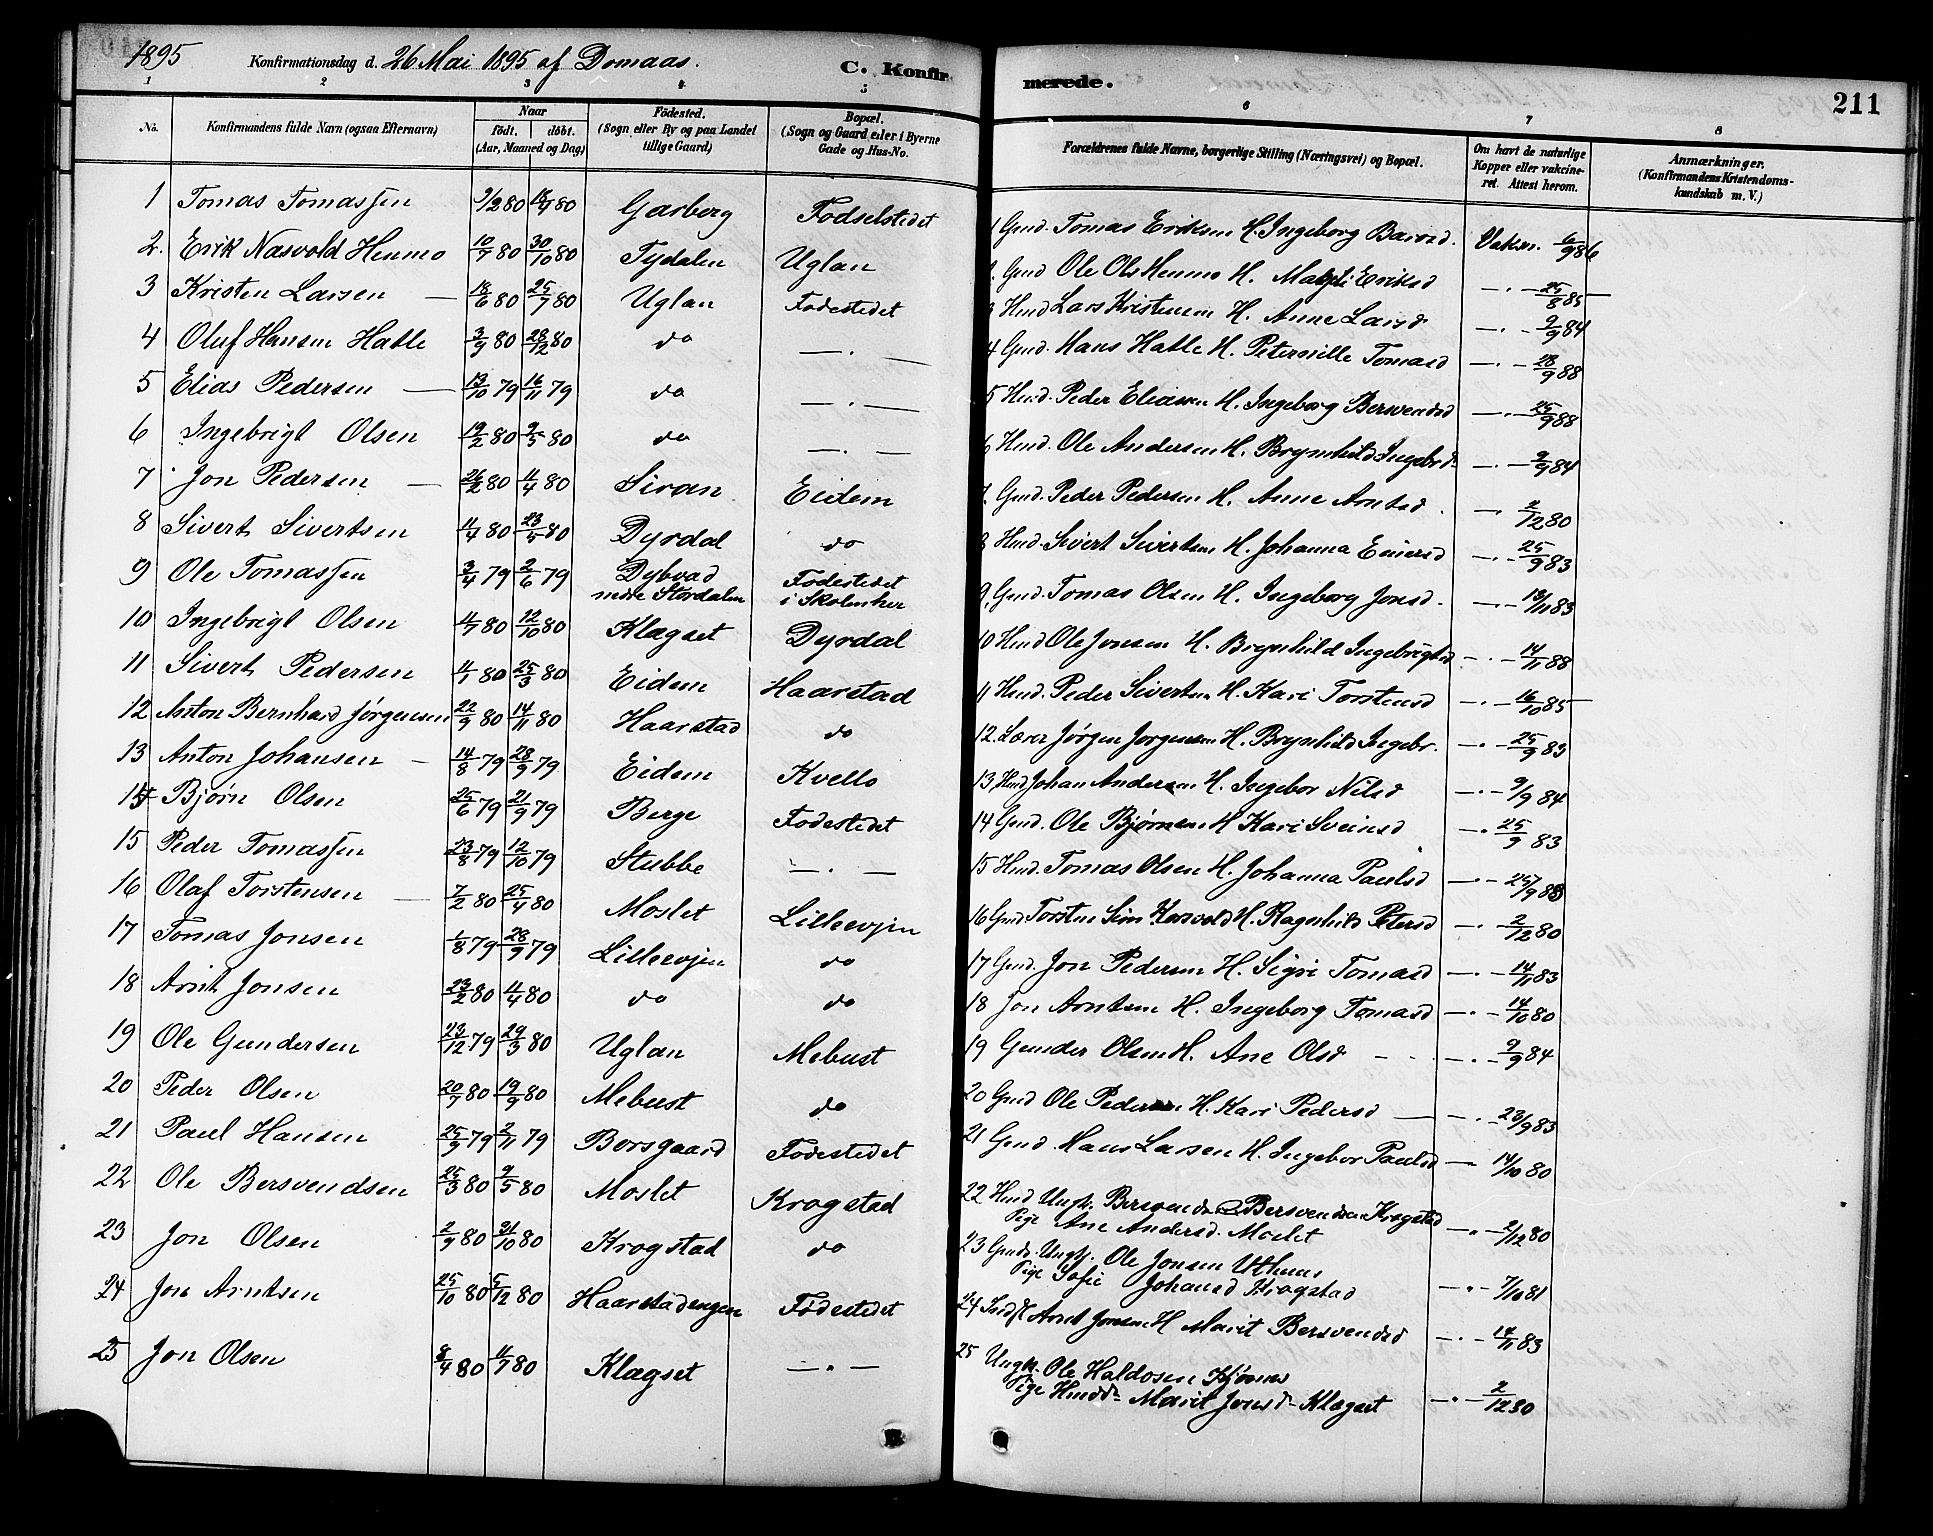 1895 Konfirmationsdag d. 26 Mai 1895 af Domaas. C. Konfirmerede. 211
1 2 3 4 5 6 7 8
No. Konfirmandens fulde Navn (ogsaa Efternavn) Naar født. døbt. (Aar, Maaned og Dag) Fødested. (Sogn eller By og paa Landet tillige Gaard) Bopæl. (Sogn og Gaard eller i Byerne Gade og Hus-No. Forældrenes fulde Navne, borgerlige Stilling (Næringsvei) og Bopæl. Om havt de naturlige Kopper eller vakcineret. Attest herom. Anmærkninger. (Konfirmandens Kristendomskundskab m. V.)
1 Tomas Tomassen 80 80 Garberg Fodselstedet 1 Gmd. Tomas Eriksen H. Ingeborg Vaksn. 6/9 86
2. Erik Nasvold Henmo 10/7 80 30/10 80 Tydalen Uglan 2. Gmd Ole Ols Henmo H. Eriksd —.— 25/8 85
3 Kristen Larsen — 18/6 80 25/7 80 Uglan Fodestedet 3 Hmd Lars Kristensen H. Anne Larsd —.— 9/9 84
4 Oluf Hansen Hatle 3/9 80 28/12 80 do —.— 4 Gmd. Hans Hatle H. Peternille Tomasd —.— 28/9 88
5 Elias Pedersen — 13/10 79 16/11 79 do —.— 5 Hmd. Peder Eliasen H. Ingeborg Bersvendsd —.— 25/9 88
6 Ingebrigt Olsen 19/2 80 9/5 80 do —.— 6 Hmd. Ole Andersen H. Brynhild Ingebrd —.— 9/9 84
7 Jon Pedersen — 26/2 80 11/4 80 Siran Eidem 7. Gmd. Peder Pedersen H. Anne Arntsd. —. 2/12 80
8 Sivert Sivertsen 11/4 80 23/5 80 Dyrdal do 8 Hmd. Sivert Sivertsen H. Johanna Einersd —.— 25/9 83
9 Ole Tomassen 3/4 79 2/6 79 Dybvad nedre Stordalen Fodestedet i Skolusker 9. Gmd. Tomas Olsen H. Ingeborg Jonsd. —.— 13/11 83
10 Ingebrigt Olsen 11/7 80 12/10 80 Klagset Dyrdal 10 Hmd Ole Jonsen H. Brynhild Ingebrigtsd —.— 14/11 88
11 Sivert Pedersen 11/1 80 25/3 80 Eidem Haarstad 11 Hmd. Peder Sivertsen H. Kari Torstensd —.— 16/10 85
12 Anton Bernhard Jørgensen 22/9 80 14/11 80 Haarstad do 12. Lærer Jørgen Jørgensen H. Brynhild Ingebr. —.— 25/9 83
13 Anton Johansen — 14/8 79 28/9 79 Eidem Kvello 13 Hmd Johan Andersen H. Ingebor Nilsd —.— 9/9 84
14 Bjørn Olsen 25/6 79 21/9 79 Berge Fodestedet 14 Gmd. Ole Bjørnsen H Kari Sveinsd —. 25/9 83
15 Peder Tomassen 23/8 79 12/10 79 Stubbe —.— 15 Hmd. Tomas Olsen H. Johanna Paulsd —.— 25/9 83
16 Olaf Torstensen — 7/2 80 25/4 80 Moslet Lilleevjen 16 Gmd Torsten H. Ragnhild Petersd —.— 2/12 80
17 Tomas Jonsen 1/8 79 28/9 79 Lilleevjen do 17 Gmd. Jon Pedersen H. Sigri Tomasd —.— 14/11 83
18 Arnt Jonsen 23/2 80 11/4 80 do do 18 Jon Arntsen H. Ingeborg Tomasd —.— 14/10 80
19 Ole Gundersen 23/12 79 29/3 80 Uglan Mebust 19 Gunder Olsen H. Ane Olsd —.— 9/9 84
20 Peder Olsen 20/7 80 19/9 80 Mebust do 20 Gmd Ole Pedersen H. Kari Pedersd —.— 23/9 83
21 Paul Hansen 25/9 79 2/11 79 Borsgaard Fodestedet 21 Gmd. Hans Larsen H. Ingebor Paulsd — 14/10 80
22 Ole Bersvendsen 25/3 80 9/5 80 Moslet Krogstad 22 Hmd Ungk. Bersvend Bersvendsen Krogstad
Pige Ane Andersd. Moslet —.— 2/12 80
23 Jon Olsen 2/9 80 31/10 80 Krogstad do 23 Gmds. Ungk. Ole Jonsen Uthuus
Pige Sofie Johansd Krogstad —.— 7/10 81
24 Jon Arntsen 25/10 80 5/12 80 Haarstadengen Fødestedet 24 Arnt Jonsen H Marit Bersvendsd —.— 14/11 83
25 Jon Olsen 8/4 80 11/7 80 Klagset —.— 25 Ungk. Ole Haldosen
Pige Marit Jonsd. Klagset —.— 2/12 80